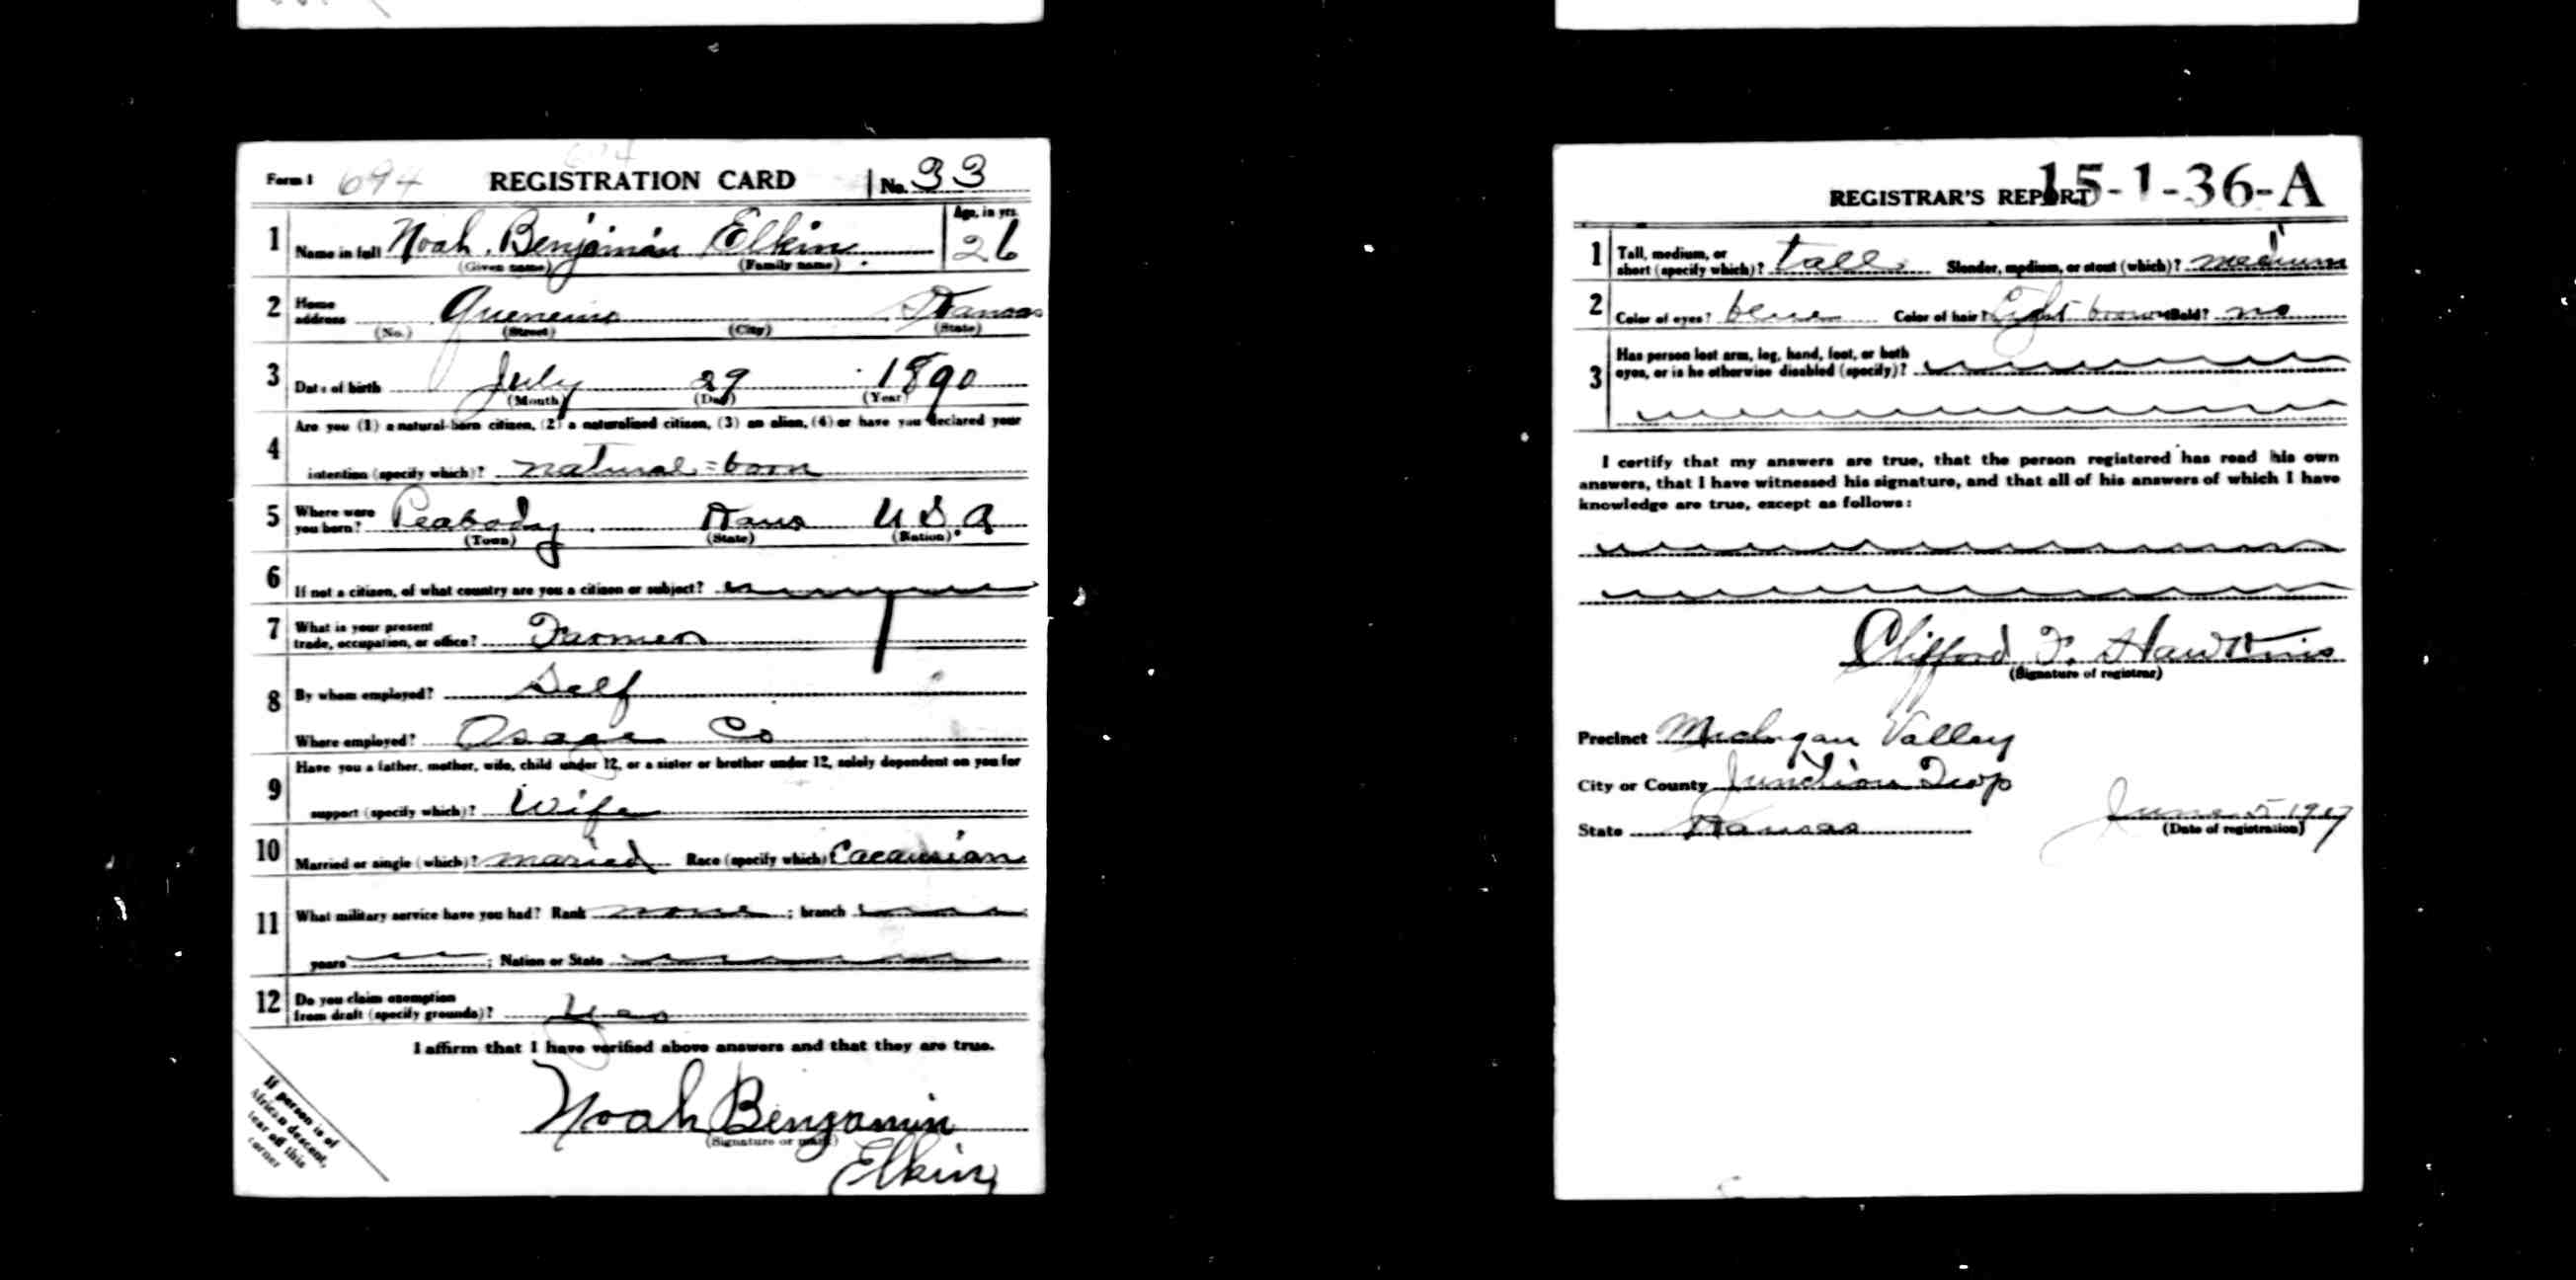 Form 1 694 REGISTRATION CARD No. 33
1 Name in full Noah Benjamin Elkin Age, in yrs. 26
(Given name) (Family name)
2 Home address Quenemo Kansas
(No.) (Street) (City) (State)
3 Date of birth July 29 1890
(Month) (Day) (Year)
Are you (1) a natural-born citizen, (2) a naturalized citizen, (3) an alien, (4) or have you declared your
4 intention (specify which)? natural=born
5 Where were you born? Peabody Kans U S A
(Town) (State) (Nation)
6 If not a citizen, of what country are you a citizen or subject?
7 What is your present
trade, occupation, or office? Farmer
8 By whom employed? Self
Where employed? Osage Co
Have you a father, mother, wife, child under 12, or a sister or brother under 12, solely dependent on you for
9 support (specify which)? Wife
10 Married or single (which)? maried Race (specify which) Cacausian
11 What military service have you had? Rank none ; branch
years ; Nation or State
12 Do you claim exemption
from draft (specify grounds)? Yes
I affirm that I have verified above answers and that they are true.
Noah Benjamin
(Signature or mark)
Elkin
If person is of
African descent,
tear off this
corner
15-1-36-A
REGISTRAR'S REPORT
1 Tall, medium, or
short (specify which)? tall Slender, medium, or stout (which)? medium
2 Color of eyes? blue Color of hair? Light brown Bald? no
Has person lost arm, leg, hand, foot, or both
3 eyes, or is he otherwise disabled (specify)?
I certify that my answers are true, that the person registered has read his own
answers, that I have witnessed his signature, and that all of his answers of which I have
knowledge are true, except as follows:
Clifford F. Hawkins
(Signature of registrar)
Precinct Michigan Valley
City or County Junction Twp
State Kansas June 5 1917
(Date of registration)